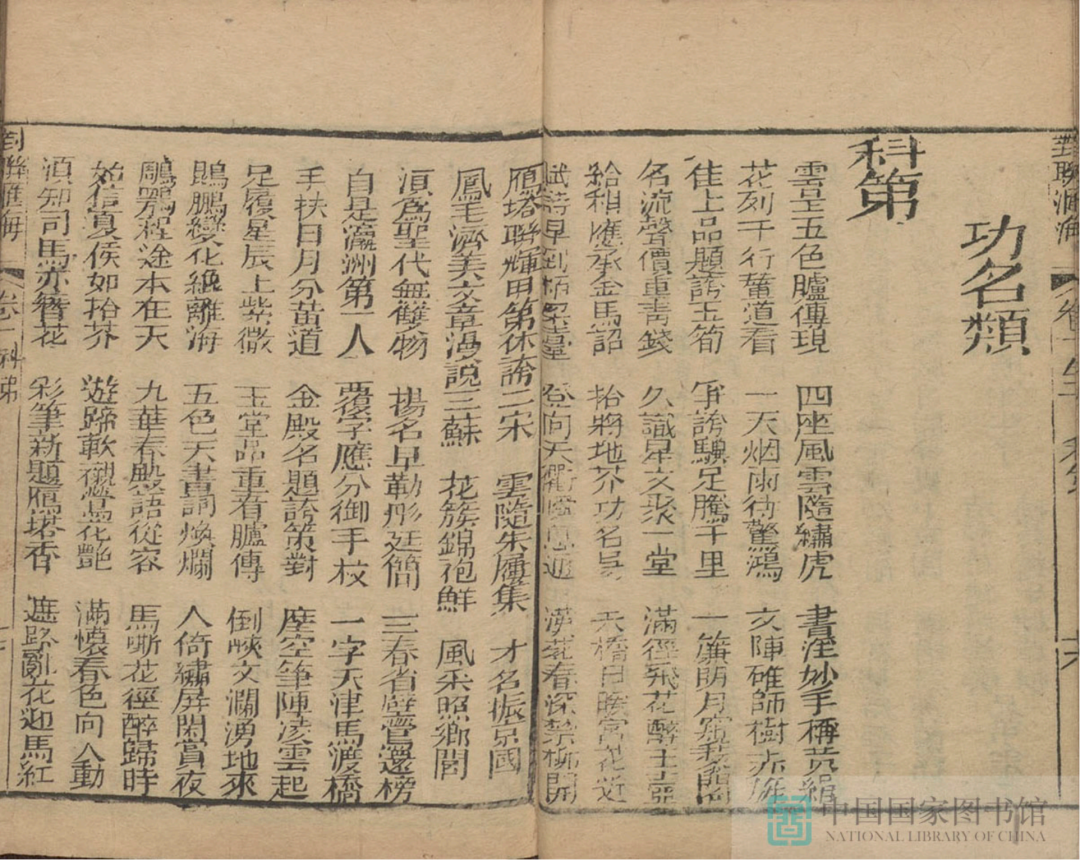 功名類
科第
雲呈五色臚傳現 四座風雲隨繡虎 書淫妙手稱黃絹
花列千行蕫道看 一天烟雨待驚鴻 文陣雄師樹赤
佳士品題誇玉筍 爭誇驥足騰千里 一簾明月窺
名流聲價重青錢 久識星文聚一堂 滿徑飛花醉
給相應承金馬詔 拾將地芥功名 天橋日暖宮花近
賦詩早到 登向天衢 漢苑春深禁柳開
雁塔聯輝田第休誇二宋 雲隨朱履集 才名振京國
鳳毛濟美文章漫說三蘇 花簇錦袍鮮 風采照鄉閭
須爲聖代無雙物 揚名早勒彤廷簡 三春省壁嘗還榜
自是瀛洲第一人 覆字應分御手校 一字天津馬渡橋
手扶日月分黃道 金殿名題誇策對 摩空筆陣凌雲起
足履星辰上紫微 玉堂品重看臚傳 倒峽文瀾湧地來
鵾鵬變化絶離海 五色天書詞煥爛 人倚繡屏閑賞夜
鵰鶚程途本在天 九華春殿語從容 馬嘶花徑醉歸時
始信夏侯如拾芥 遊蹄軟襯藍花艷 滿懷春色向人動
須知司馬亦簪花 彩筆新題鴈塔香 遮路亂花迎馬紅
對聯匯海 卷十 科第
中国国家图书馆
NATIONAL LIBRARY OF CHINA